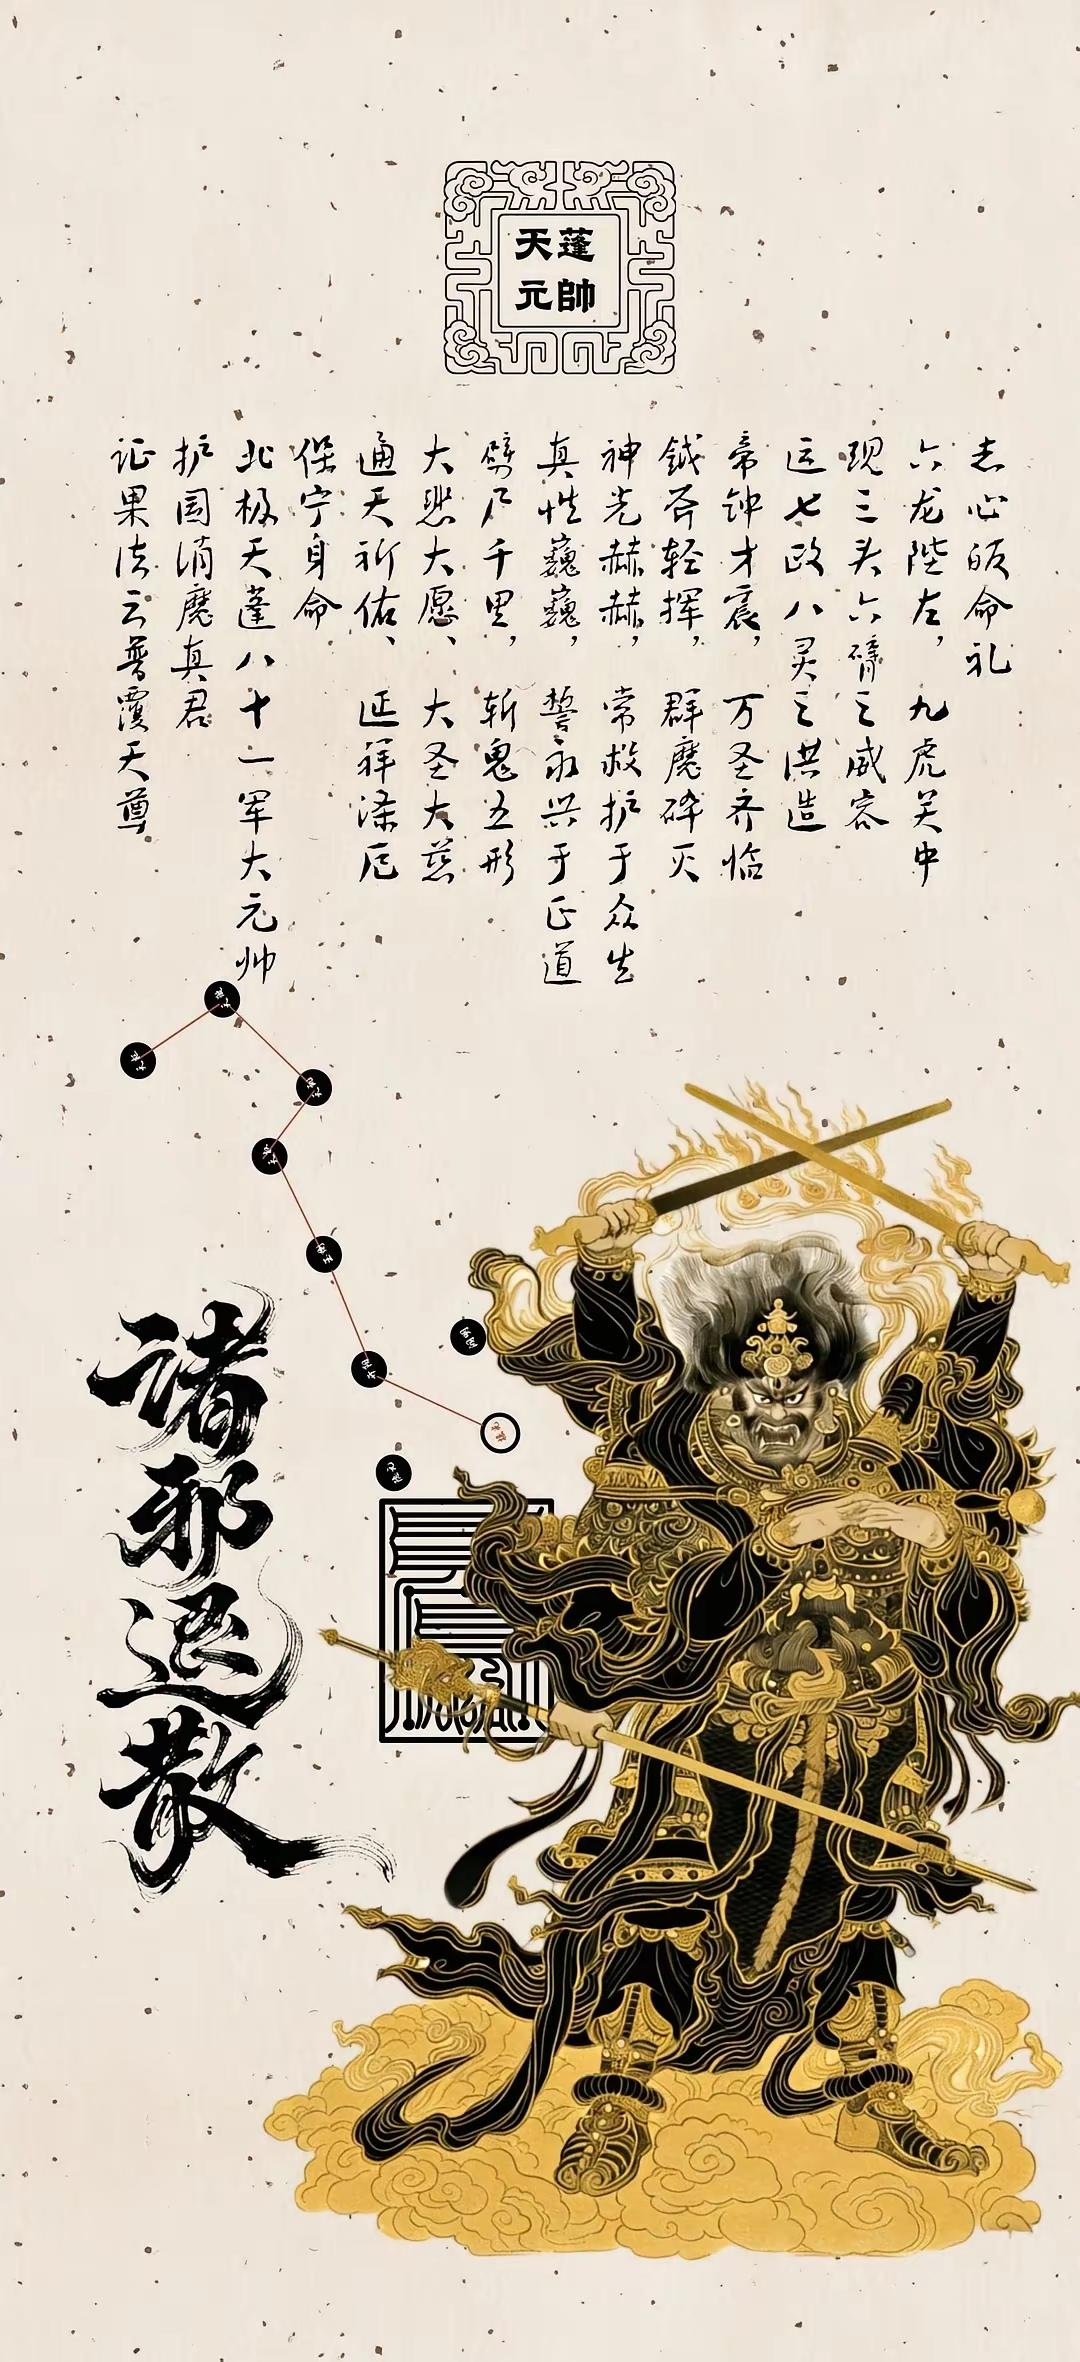 天蓬
元帥
志心皈命礼
六龙陛左，九虎关中
现三头六臂之威容
运七政八灵之洪造
帝钟才震，万圣齐临
钺斧轻挥，群魔碎灭
神光赫赫，常救护于众生
真性巍巍，誓永兴于正道
劈尸千里，斩鬼五形
大悲大愿、大圣大慈
通天祈佑、延祥涤厄
保宁身命
北极天蓬八十一军大元帅
护国消魔真君
证果法云普覆天尊
诸邪退散